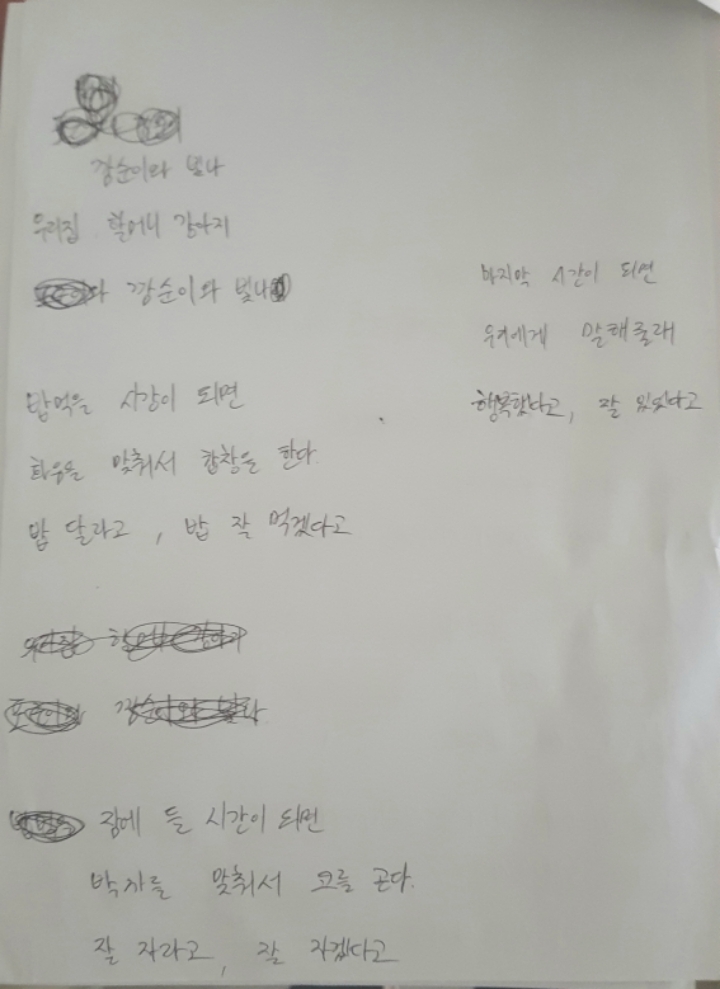 깡순이와 빛나
우리집 할머니 강아지
깡순이와 빛나
밥먹을 시간이 되면
화음을 맞춰서 합창을 한다.
밥 달라고, 밥 잘 먹겠다고
잠에 들 시간이 되면
박자를 맞춰서 코를 곤다.
잘 자라고, 잘 자겠다고
마지막 시간이 되면
우리에게 말해줄래
행복했다고, 잘 있었다고